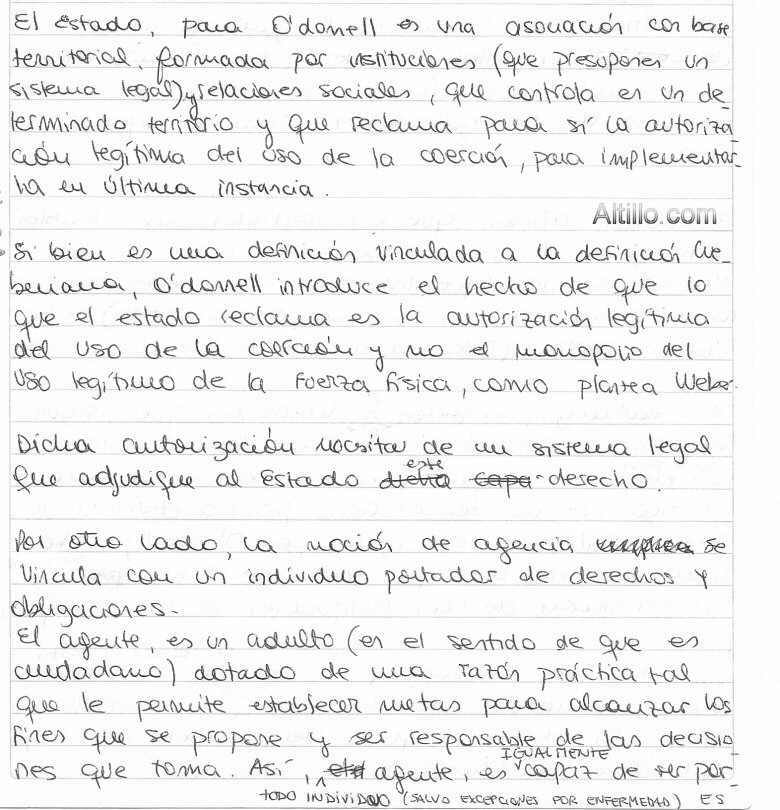 El estado, para O'donell es una asociación con base
territorial, formada por instituciones (que presuponen un
sistema legal) y relaciones sociales, que controla en un de_
terminado territorio y que reclama para sí la autoriza_
ción legítima del uso de la coerción, para implementar_
la en última instancia.
Altillo.com
Si bien es una definición vinculada a la definición We_
beriana, O'donell introduce el hecho de que lo
que el estado reclama es la autorización legítima
del uso de la coerción y no el monopolio del
uso legítimo de la fuerza física, como plantea Weber.
Dicha autorización necsita de un sistema legal
que adjudique al Estado dicha este capa derecho.
Por otro lado, la noción de agencia se
vincula con un individuo portador de derechos y
obligaciones.
El agente, es un adulto (en el sentido de que es
ciudadano) dotado de una razón práctica tal
que le permite establecer metas para alcanzar los
fines que se propone y ser responsable de las decisio_
nes que toma. Así, agente, es IGUALMENTE capaz de ser por_
TODO INDIVIDUO (SALVO EXCEPCIONES POR ENFERMEDAD) ES